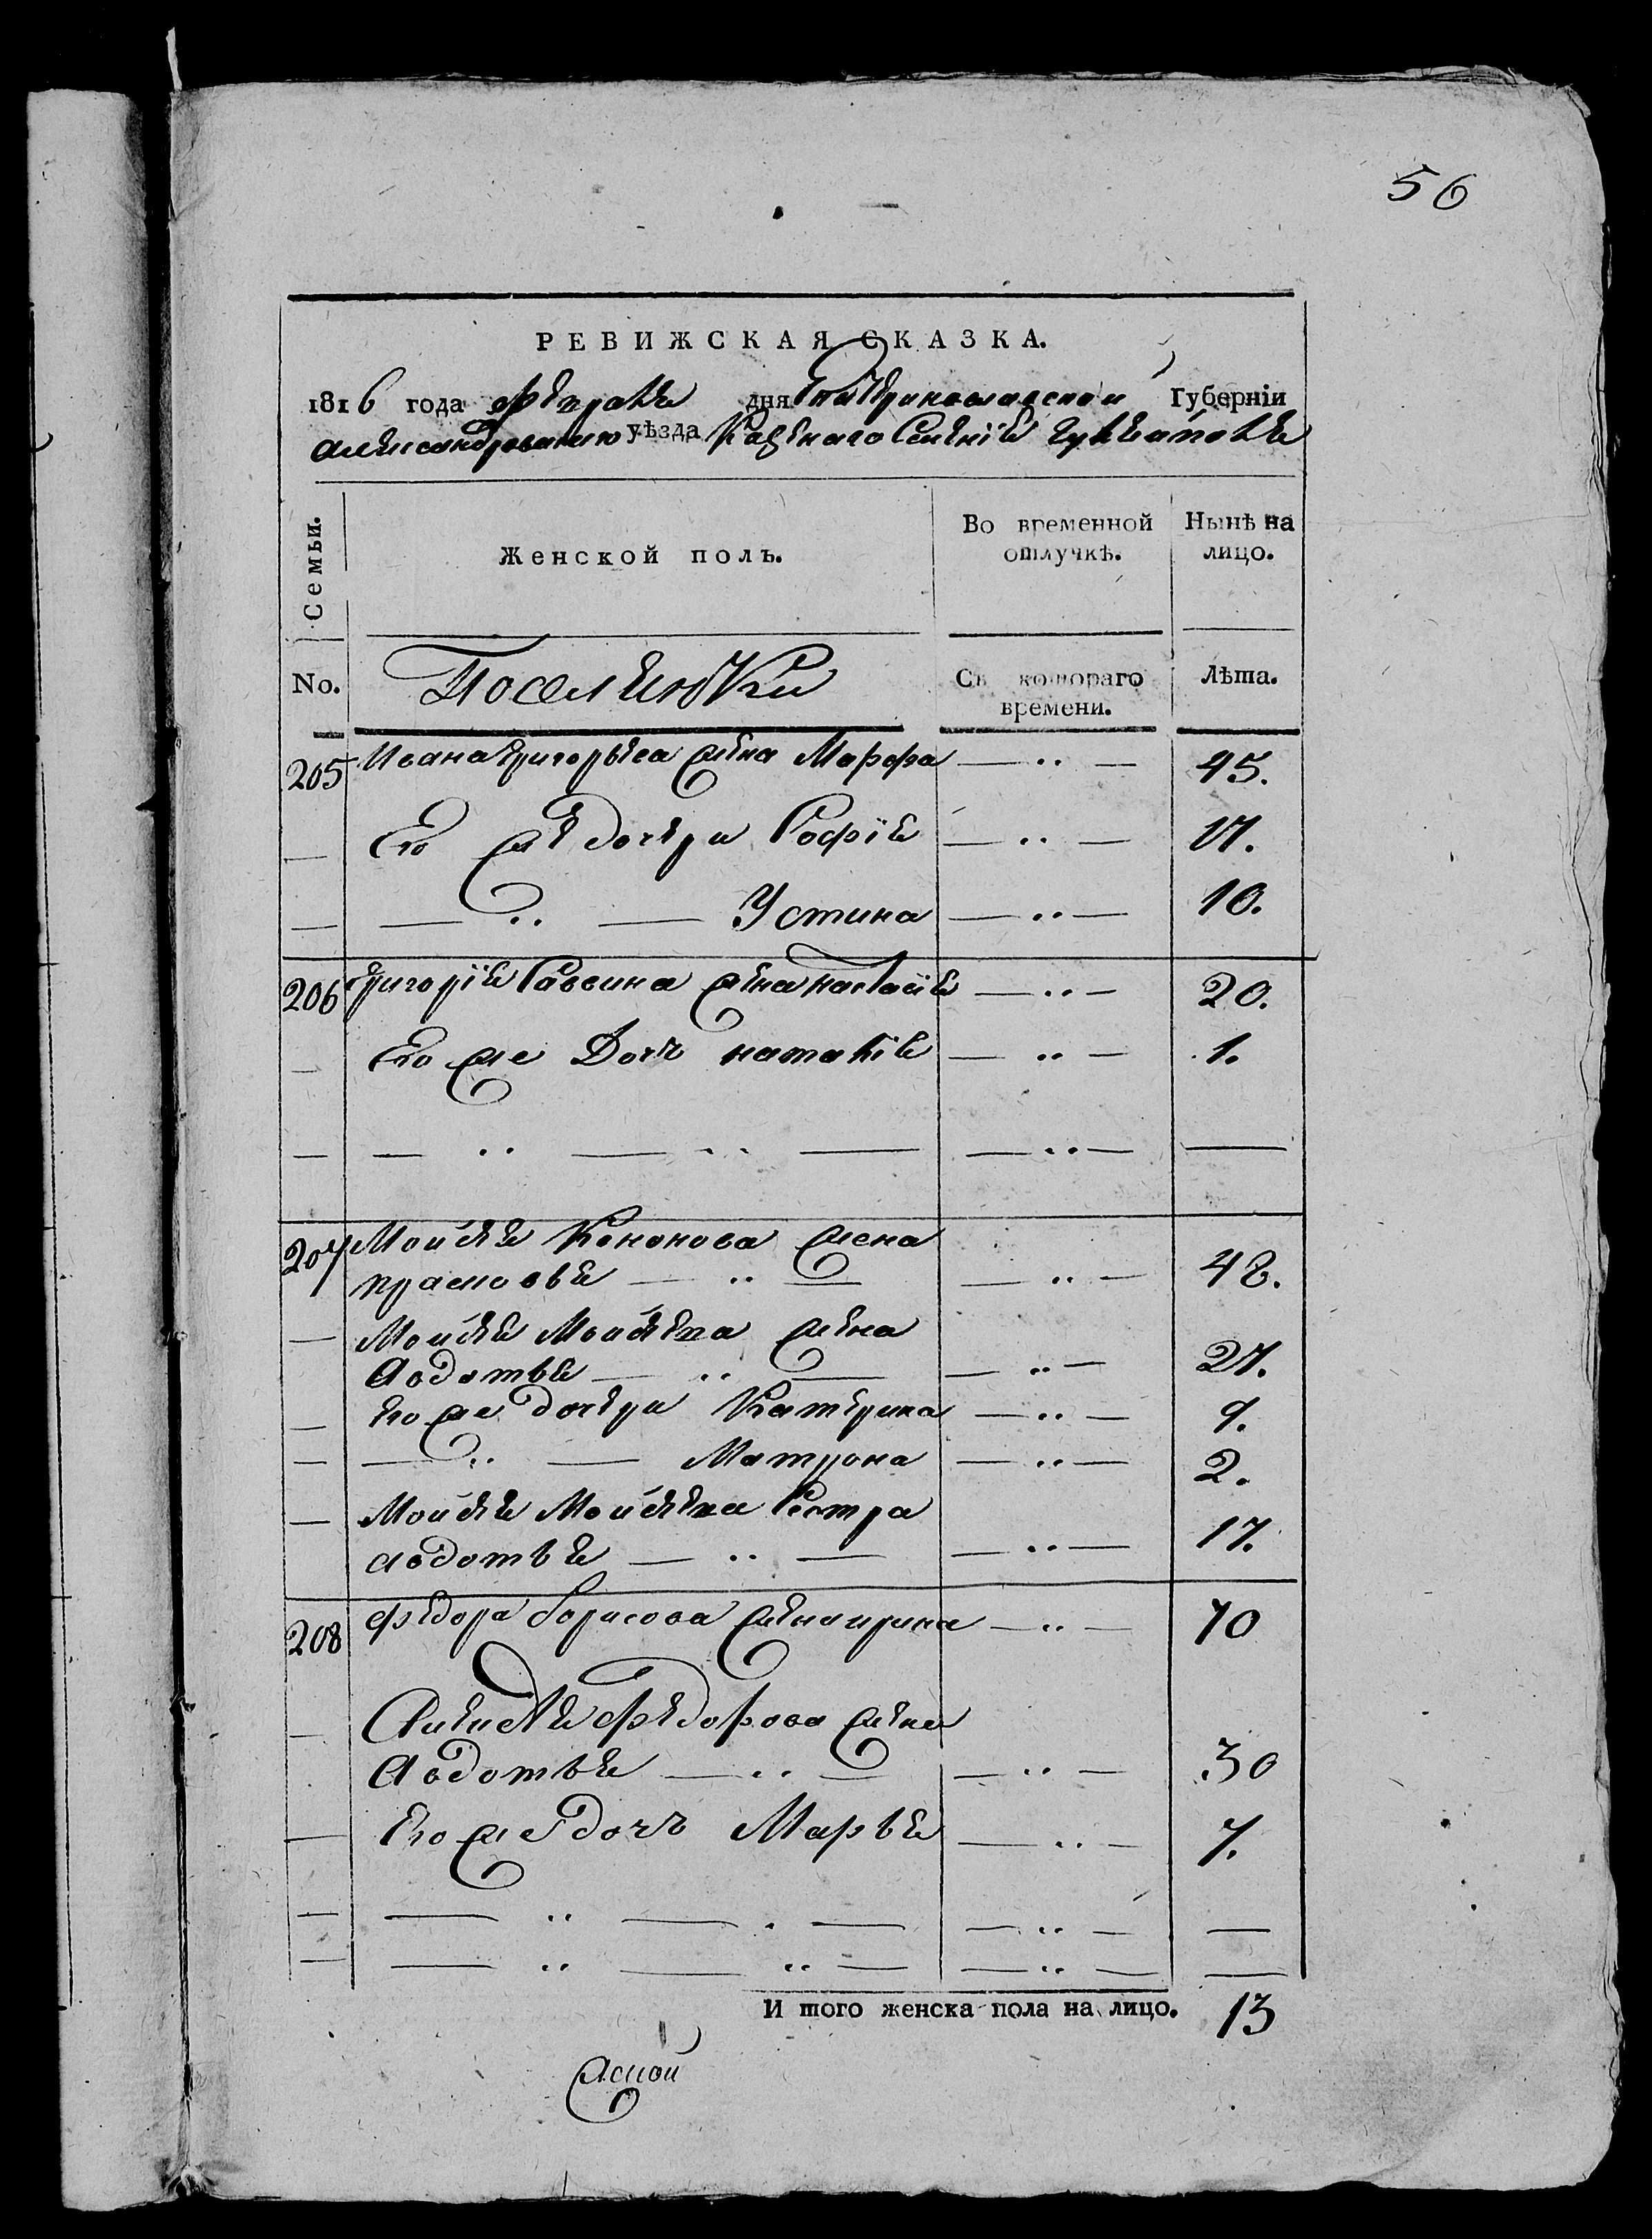 56
РЕВИЖСКАЯ СКАЗКА.
1816 года февраля дня Екатеринославской Губерніи
александровскаго уѣзда Казенаго Селенія
Семьи.
Женской полъ.
Во временной отлучкѣ.
Нынѣ на лицо.
No.
Поселянки
Съ котораго времени.
Лѣта.
205 Ивана григорьева жена Марфа — ‥ — 45.
— Его же дочери Софія — ‥ — 17.
— — ‥ — Устина — ‥ — 10.
206 григорія Саввина жена настасія — ‥ — 20.
— Его же Дочь наталія — ‥ — 1.
— — ‥ — ‥ — — ‥ — —
207 Мойсея Кононова жена
прасковья — ‥ — — ‥ — 48.
— Мойсея Мойсеева жена
Авдотья — ‥ — — ‥ — 27.
— Его же дочери Катерина — ‥ — 9.
— — ‥ — Матрона — ‥ — 2.
— Мойсея Мойсеева Сестра
авдотья — ‥ — — ‥ — 17.
208 федора борисова жена ирина — ‥ — 70
— Алексея федорова жена
Авдотья — ‥ — — ‥ — 30
— Его же дочь Марья — ‥ — 7.
— — ‥ — . — — ‥ — —
— — ‥ — ‥ — — ‥ — —
И того женска пола на лицо. 13